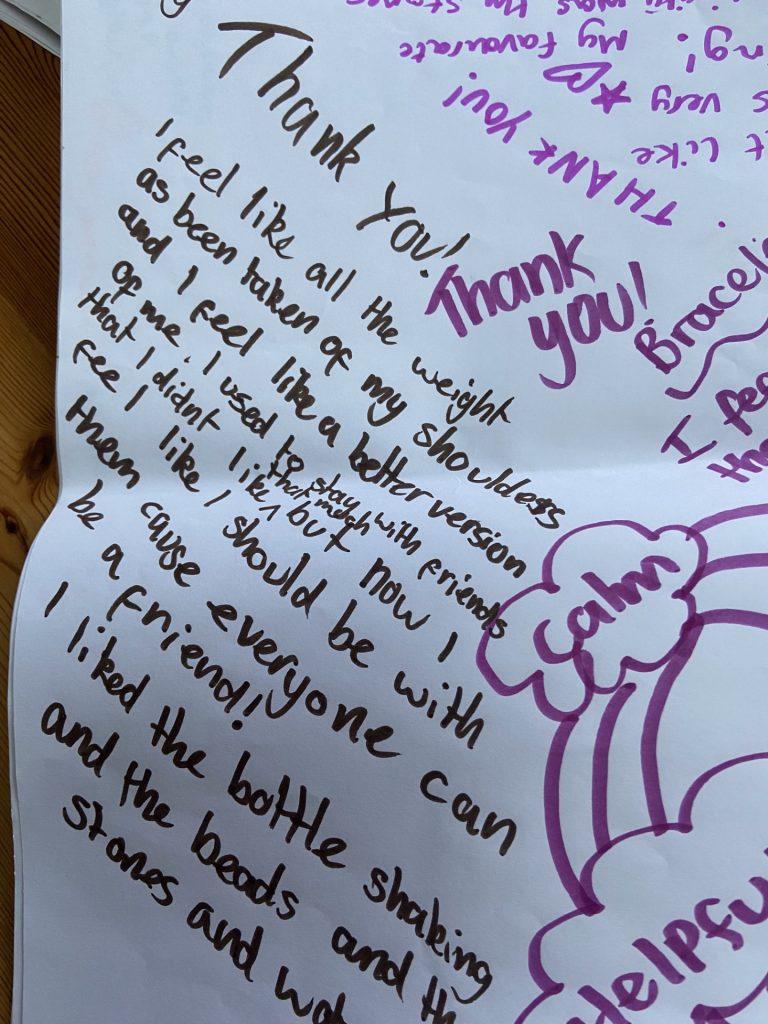 Thank you!
I feel like all the weight
as been taken of my shouldess
and I feel like a better version
of me. I used to stay with friends
that I didnt like that much but now I
feel like I should be with
them cause everyone can
be a friend!
I liked the bottle shaking
and the beads and th
stones and wat
Thank
you!
THANK YOU!
like
very
My favaurate
was the stones
Bracel
I fee
the
calm
Helpful